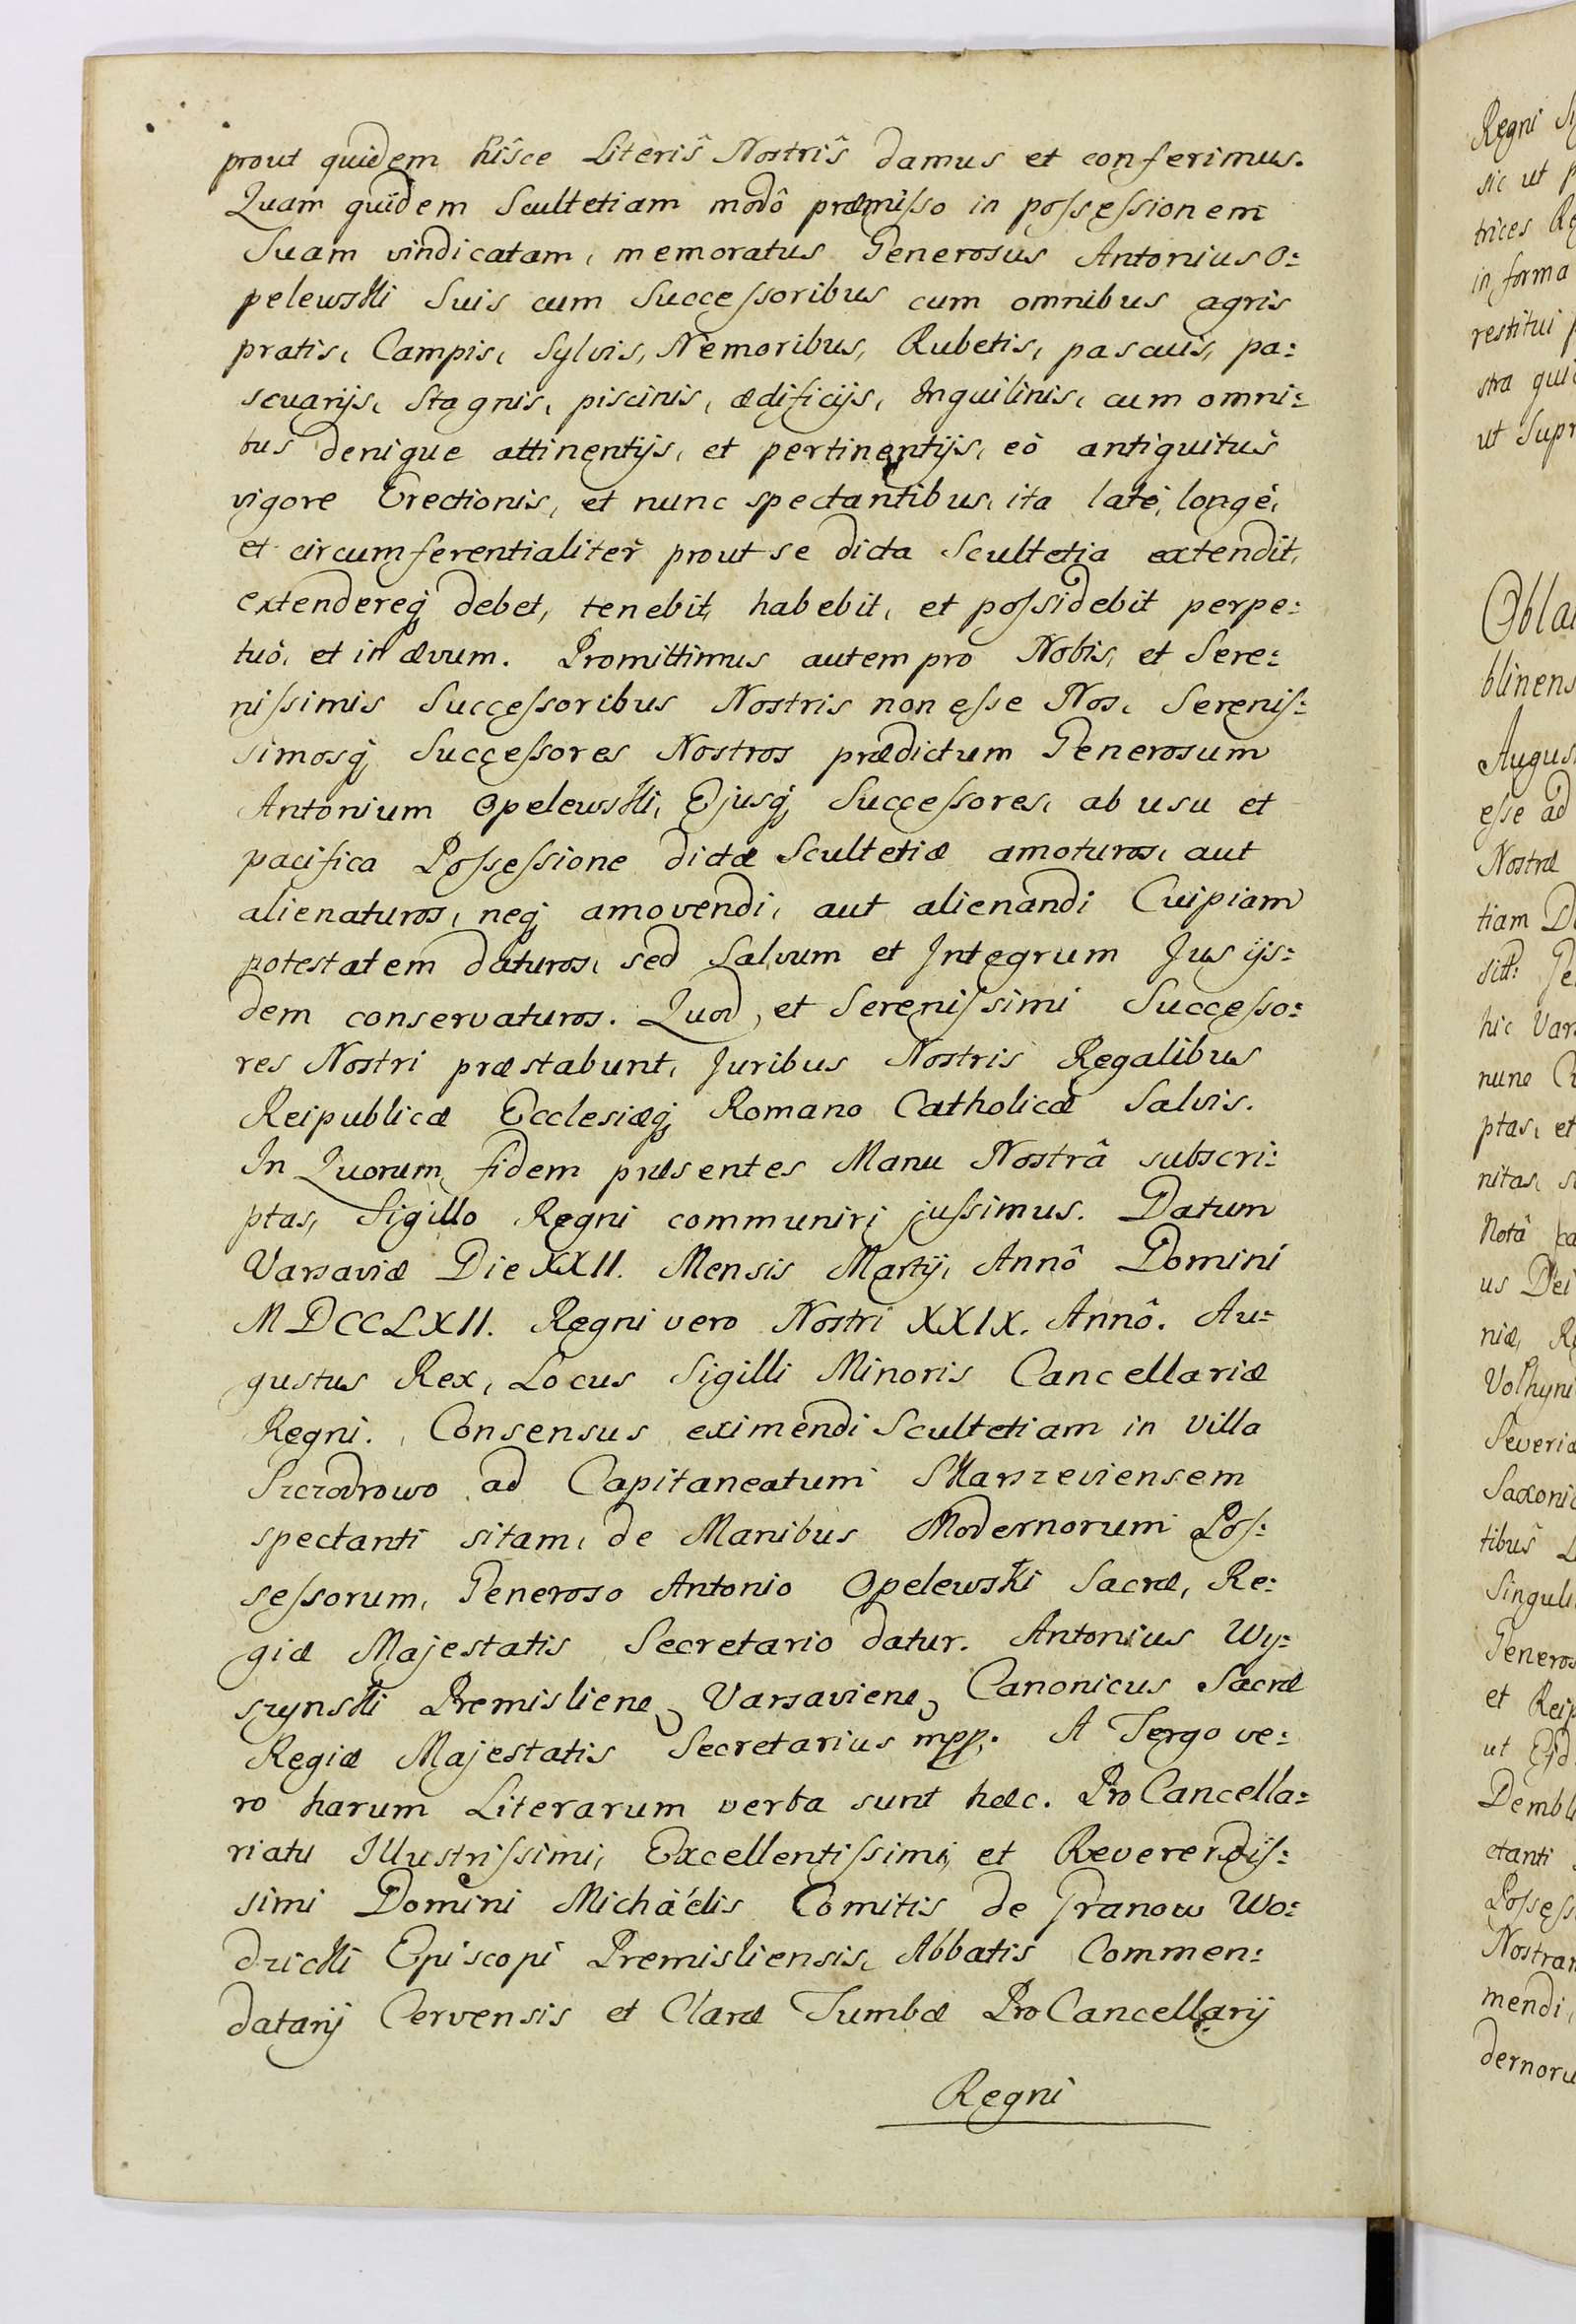 prout quidem hisce Literis Nostris damus et conferimus.
Quam quidem Scultetiam modô præmisso in possessionem
Suam vindicatam, memoratus Generosus Antonius O:
pelewski Suis cum Successoribus cum omnibus agris
pratis, Campis, Sylvis, Nemoribus, Rubetis, pascuis, pa:
scuarijs, Stagnis, piscinis, ædificijs, Inquilinis, cum omni:
bus denique attinentijs, et pertinentijs, eò antiquitus
vigore Erectionis, et nunc spectantibus, ita latè, longè,
et circumferentialiter prout se dicta Scultetia extendit,
extendereq́ debet, tenebit, habebit, et possidebit perpe:
tuò, et in ævum. Promittimus autem pro Nobis, et Sere:
nissimis Successoribus Nostris non esse Nos, Serenis:
simosq́ Successores Nostros prædictum Generosum
Antonium Opelewski, Ejusq́ Successores, ab usu et
pacifica Possessione dictæ Scultetiæ amoturos, aut
alienaturos, neq́ amovendi, aut alienandi Cuipiam
potestatem daturos, sed Salvum et Integrum Jus ijs:
dem conservaturos. Quod, et Serenissimi Successo:
res Nostri præstabunt, Juribus Nostris Regalibus
Reipublicæ Ecclesiæq́ Romano Catholicæ Salvis.
In Quorum fidem præsentes Manu Nostrâ subscri:
ptas, Sigillo Regni communiri jussimus. Datum
Varsaviæ Die XXII. Mensis Martij, Annô Domini
MDCCLXII. Regni vero Nostri XXIX. Annô. Au:
gustus Rex, Locus Sigilli Minoris Cancellariæ
Regni. Consensus eximendi Scultetiam in Villa
Szczodrowo ad Capitaneatum Skarszeviensem
spectanti sitam, de Manibus Modernorum Pos:
sessorum, Generoso Antonio Opelewski Sacræ, Re:
giæ Majestatis Secretario datur. Antonius Wy:
szynski Premisliene, Varsaviene, Canonicus Sacræ
Regiæ Majestatis Secretarius mpp. A Tergo ve:
ro harum Literarum verba sunt hæc. Pro Cancella:
riatu Illustrissimi, Excellentissimi, et Reverendis:
simi Domini Michaélis Comitis de Granow Wo:
dzicki Episcopi Premisliensis, Abbatis Commen:
datarij Cervensis et Claræ Tumbæ Pro Cancellarij
Regni
Regni
sic ut
trices
in forma
restitui
stra
ut Supr
blinens
Augus
esse ad
Nostræ
tiam
hic Vars
nunc
ptas, et
nitas,
Notâ
us Dei
niæ,
Volhyni
Severiæ
Saxoni
tibus
Singuli
Generos
et Reip
ut
Dembli
ctanti
Possess
Nostram
mendi,
dernoru